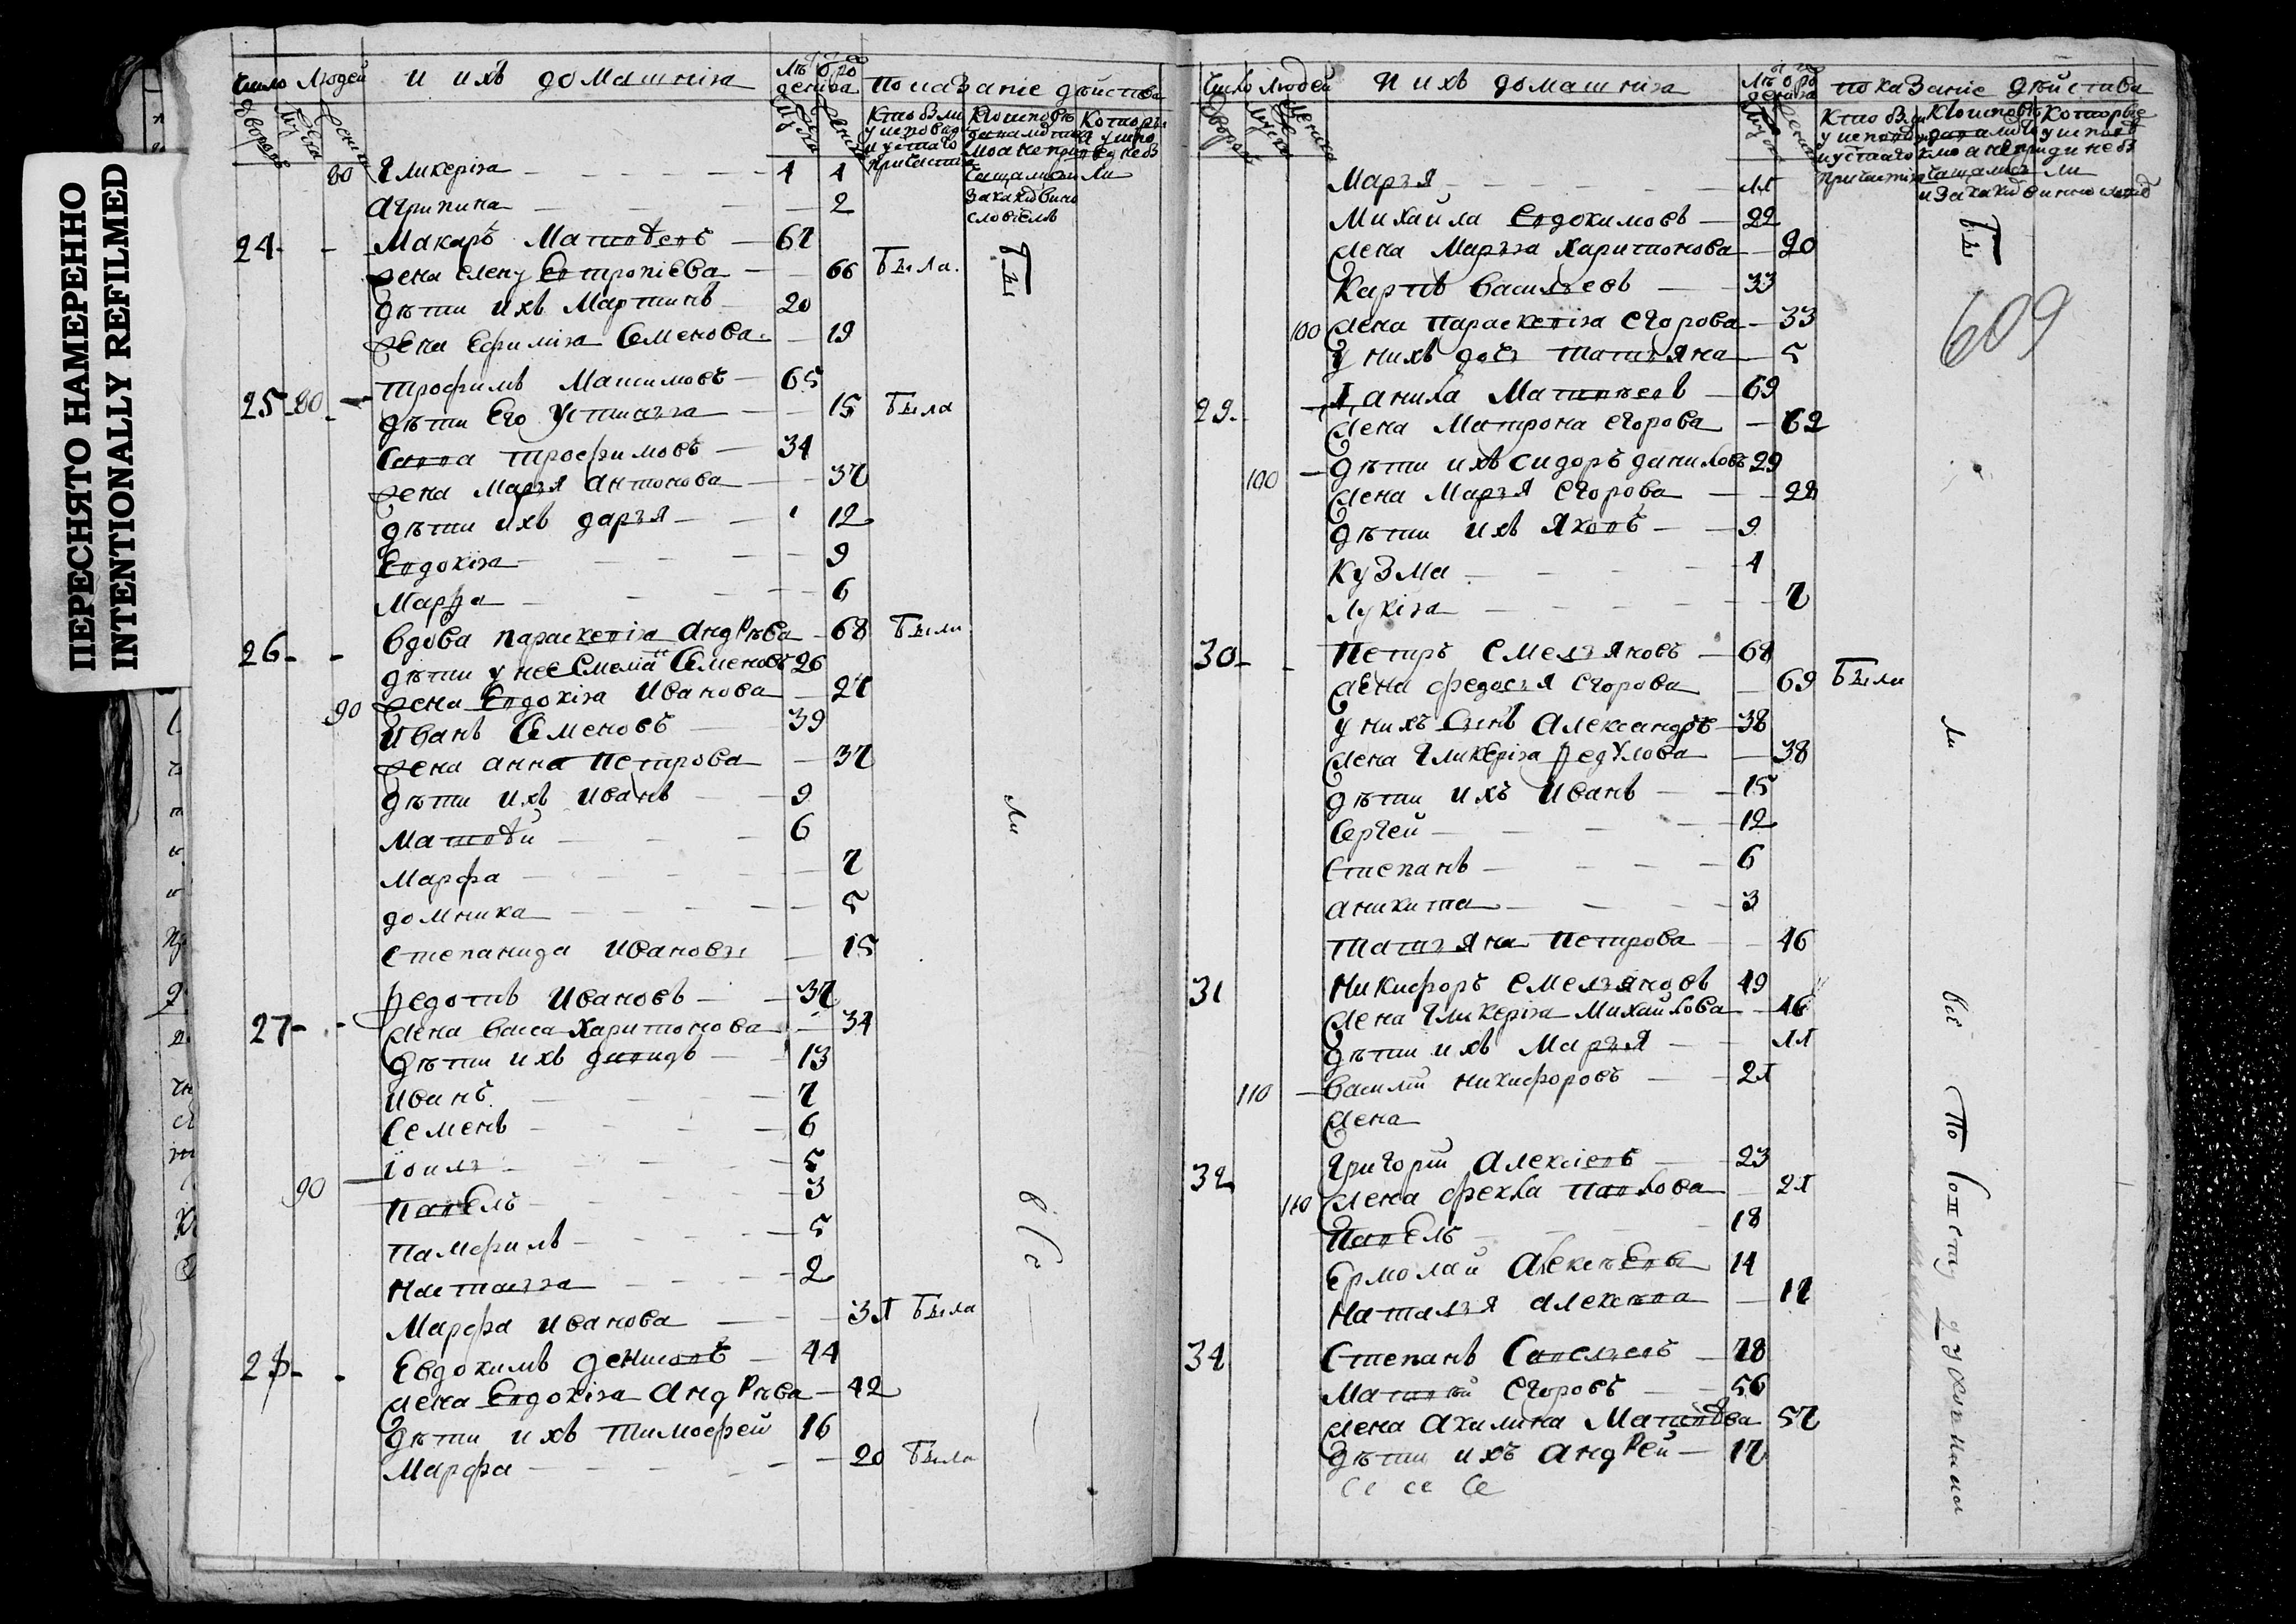 ПЕРЕСНЯТО НАМЕРЕННО
INTENTIONALLY REFILMED
Число Людей
и ихъ домашнiя
показанiе дѣйства
80 Гликерiя 4 4
Агрипина 2
24 Макаръ Матвѣевъ 67
жена елену Евтропiева 66 была
дѣти ихъ Мартинъ 20
жена Ефимiя Семенова 19
25 80 Трофимъ Максимовъ 65
дѣти Его Устинья 15 была
Савва Трофимовъ 34
жена Марья Антонова 37
дѣти ихъ дарья 12
Евдокiя 9
Марѳа 6
26 вдова параскевiя Андрѣва 68 были
дѣти у нее Емелiанъ Семеновъ 26
90 жена Евдокiя Иванова 27
Иванъ Семеновъ 39
жена анна Петрова 37
дѣти ихъ иванъ 9
Матвѣй 6
Марфа 7
домника 5
Степанида Ивановы 15
27 Ѳедотъ Ивановъ 37
жена васса Харитонова 34
дѣти ихъ давидъ 13
Иванъ 7
Семенъ 6
90 iоиль 5
Павелъ 3
Памфилъ 5
Настасья 2
Марфа иванова 31 была
28 Евдокимъ денисовъ 44
жена Евдокiя Андрѣва 42
дѣти ихъ Тимофей 16
Марфа 20 была
Бы
ли
всѣ
Число Людей
и ихъ домашнiя
показанiе дѣйства
609
Марья 11
Михайла Евдокимовъ 22
жена Марья Харитонова 20
Карпъ васильевъ 33
100 жена Параскевiя Егорова 33
у нихъ дочь Татьяна 5
29 Данила Матвѣевъ 69
жена Матрона Егорова 62
100 дѣти ихъ сидоръ даниловъ 29
жена Марья Егорова 28
дѣти ихъ Яковъ 9
Кузма 4
Лукiя 7
30 Петръ Емельяновъ 68
жена федосья Егорова 69 были
у нихъ сынъ Александръ 38
жена Гликерiя Ѳедулова 38
дѣти ихъ Иванъ 15
Сергей 12
Степанъ 6
аникита 3
Татьяна Петрова 46
31 Никифоръ Емельяновъ 49
жена Гликерiя Михайлова 46
дѣти ихъ Марья 11
110 василiй никифоровъ 21
жена
32 Григорiй Алексiевъ 23
110 жена фекла Павлова 21
Павелъ 18
Ермолай Алексѣевъ 14
Наталья алексѣва 17
34 Степанъ Савельевъ 78
Матвѣй Егоровъ 56
жена Акилина Матвѣва 57
дѣти ихъ Андрей 17
Бы
ли
всѣ
По